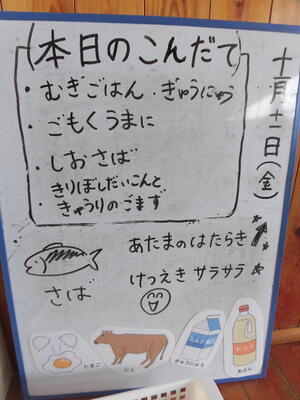 本日のこんだて
十一月十一日(金)
・むぎごはん ・ぎゅうにゅう
・ごもくうまに
・しおさば
きりぼしだいこんと
きゅうりのごまず
あたまのはたらき
けっえき サラサラ
さば
たまご
にく
ミルク
ぎゅうにゅう
あぶら